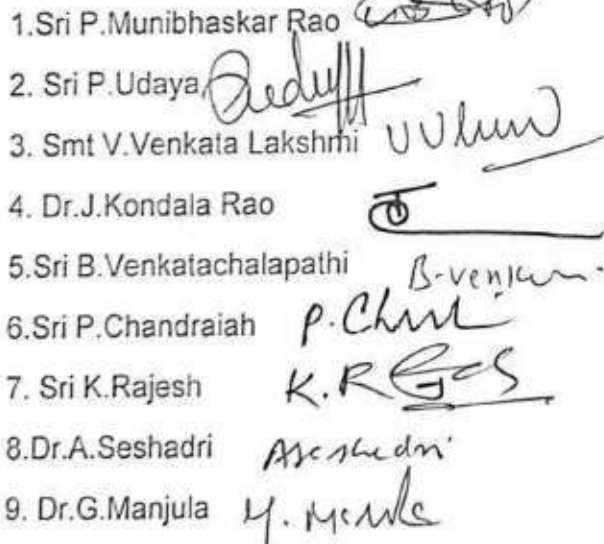 1.Sri P.Munibhaskar Rao
2. Sri P.Udaya
3. Smt V.Venkata Lakshmi
4. Dr.J.Kondala Rao
5.Sri B.Venkatachalapathi
6.Sri P.Chandraiah P.
7. Sri K.Rajesh K.R
8.Dr.A.Seshadri
9. Dr.G.Manjula